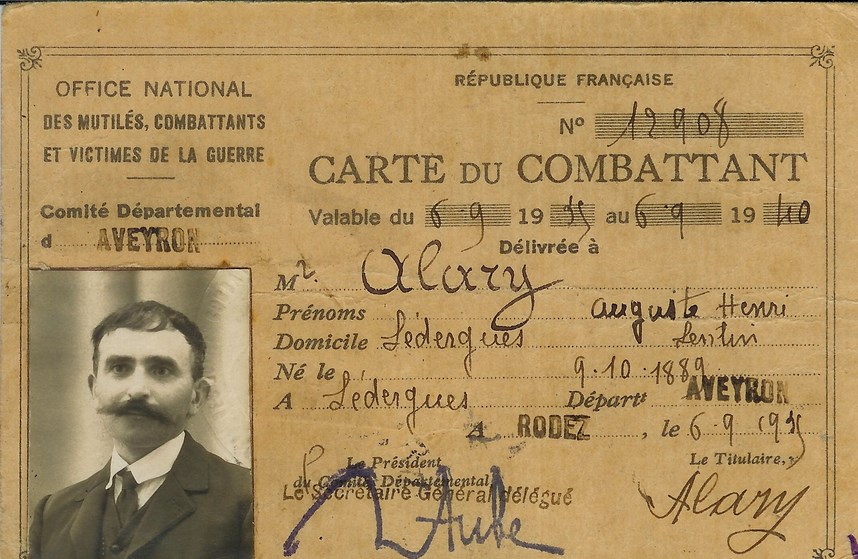 OFFICE NATIONAL
DES MUTILÉS, COMBATTANTS
ET VICTIMES DE LA GUERRE
Comité Départemental
d AVEYRON
RÉPUBLIQUE FRANÇAISE
Nº 12908
CARTE DU COMBATTANT
Valable du 6-9 1935 au 6-9 1940
Délivrée à
Mr. Alary
Prénoms Auguste Henri
Domicile Lédergues
Né le 9.10.1889
A Lédergues Départt AVEYRON
A RODEZ, le 6-9 1935
Le Président
du Comité Départemental,
Le Secrétaire Général délégué
Le Titulaire,
Alary